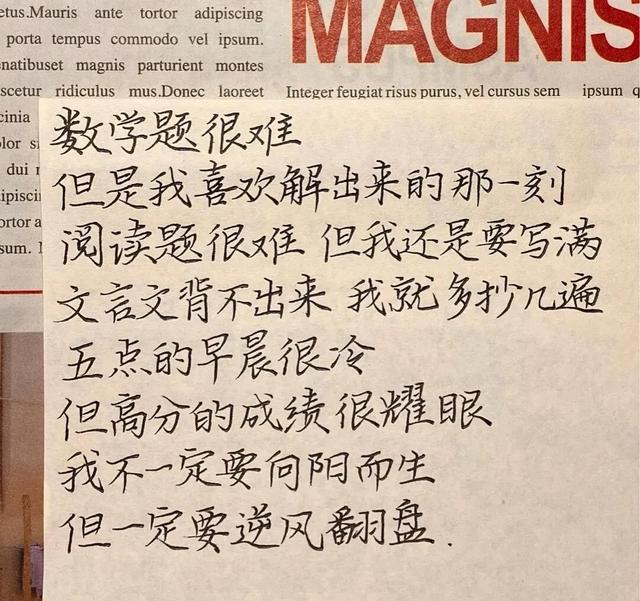 etus.Mauris ante tortor adipiscing
porta tempus commodo vel ipsum.
natibuset magnis parturient montes
scetur ridiculus mus.Donec laoreet
MAGNIS
Integer feugiat risus purus, vel cursus sem ipsum q
cinia
dui
sum.
数学题很难
但是我喜欢解出来的那一刻
阅读题很难 但我还是要写满
文言文背不出来 我就多抄几遍
五点的早晨很冷
但高分的成绩很耀眼
我不一定要向阳而生
但一定要逆风翻盘.